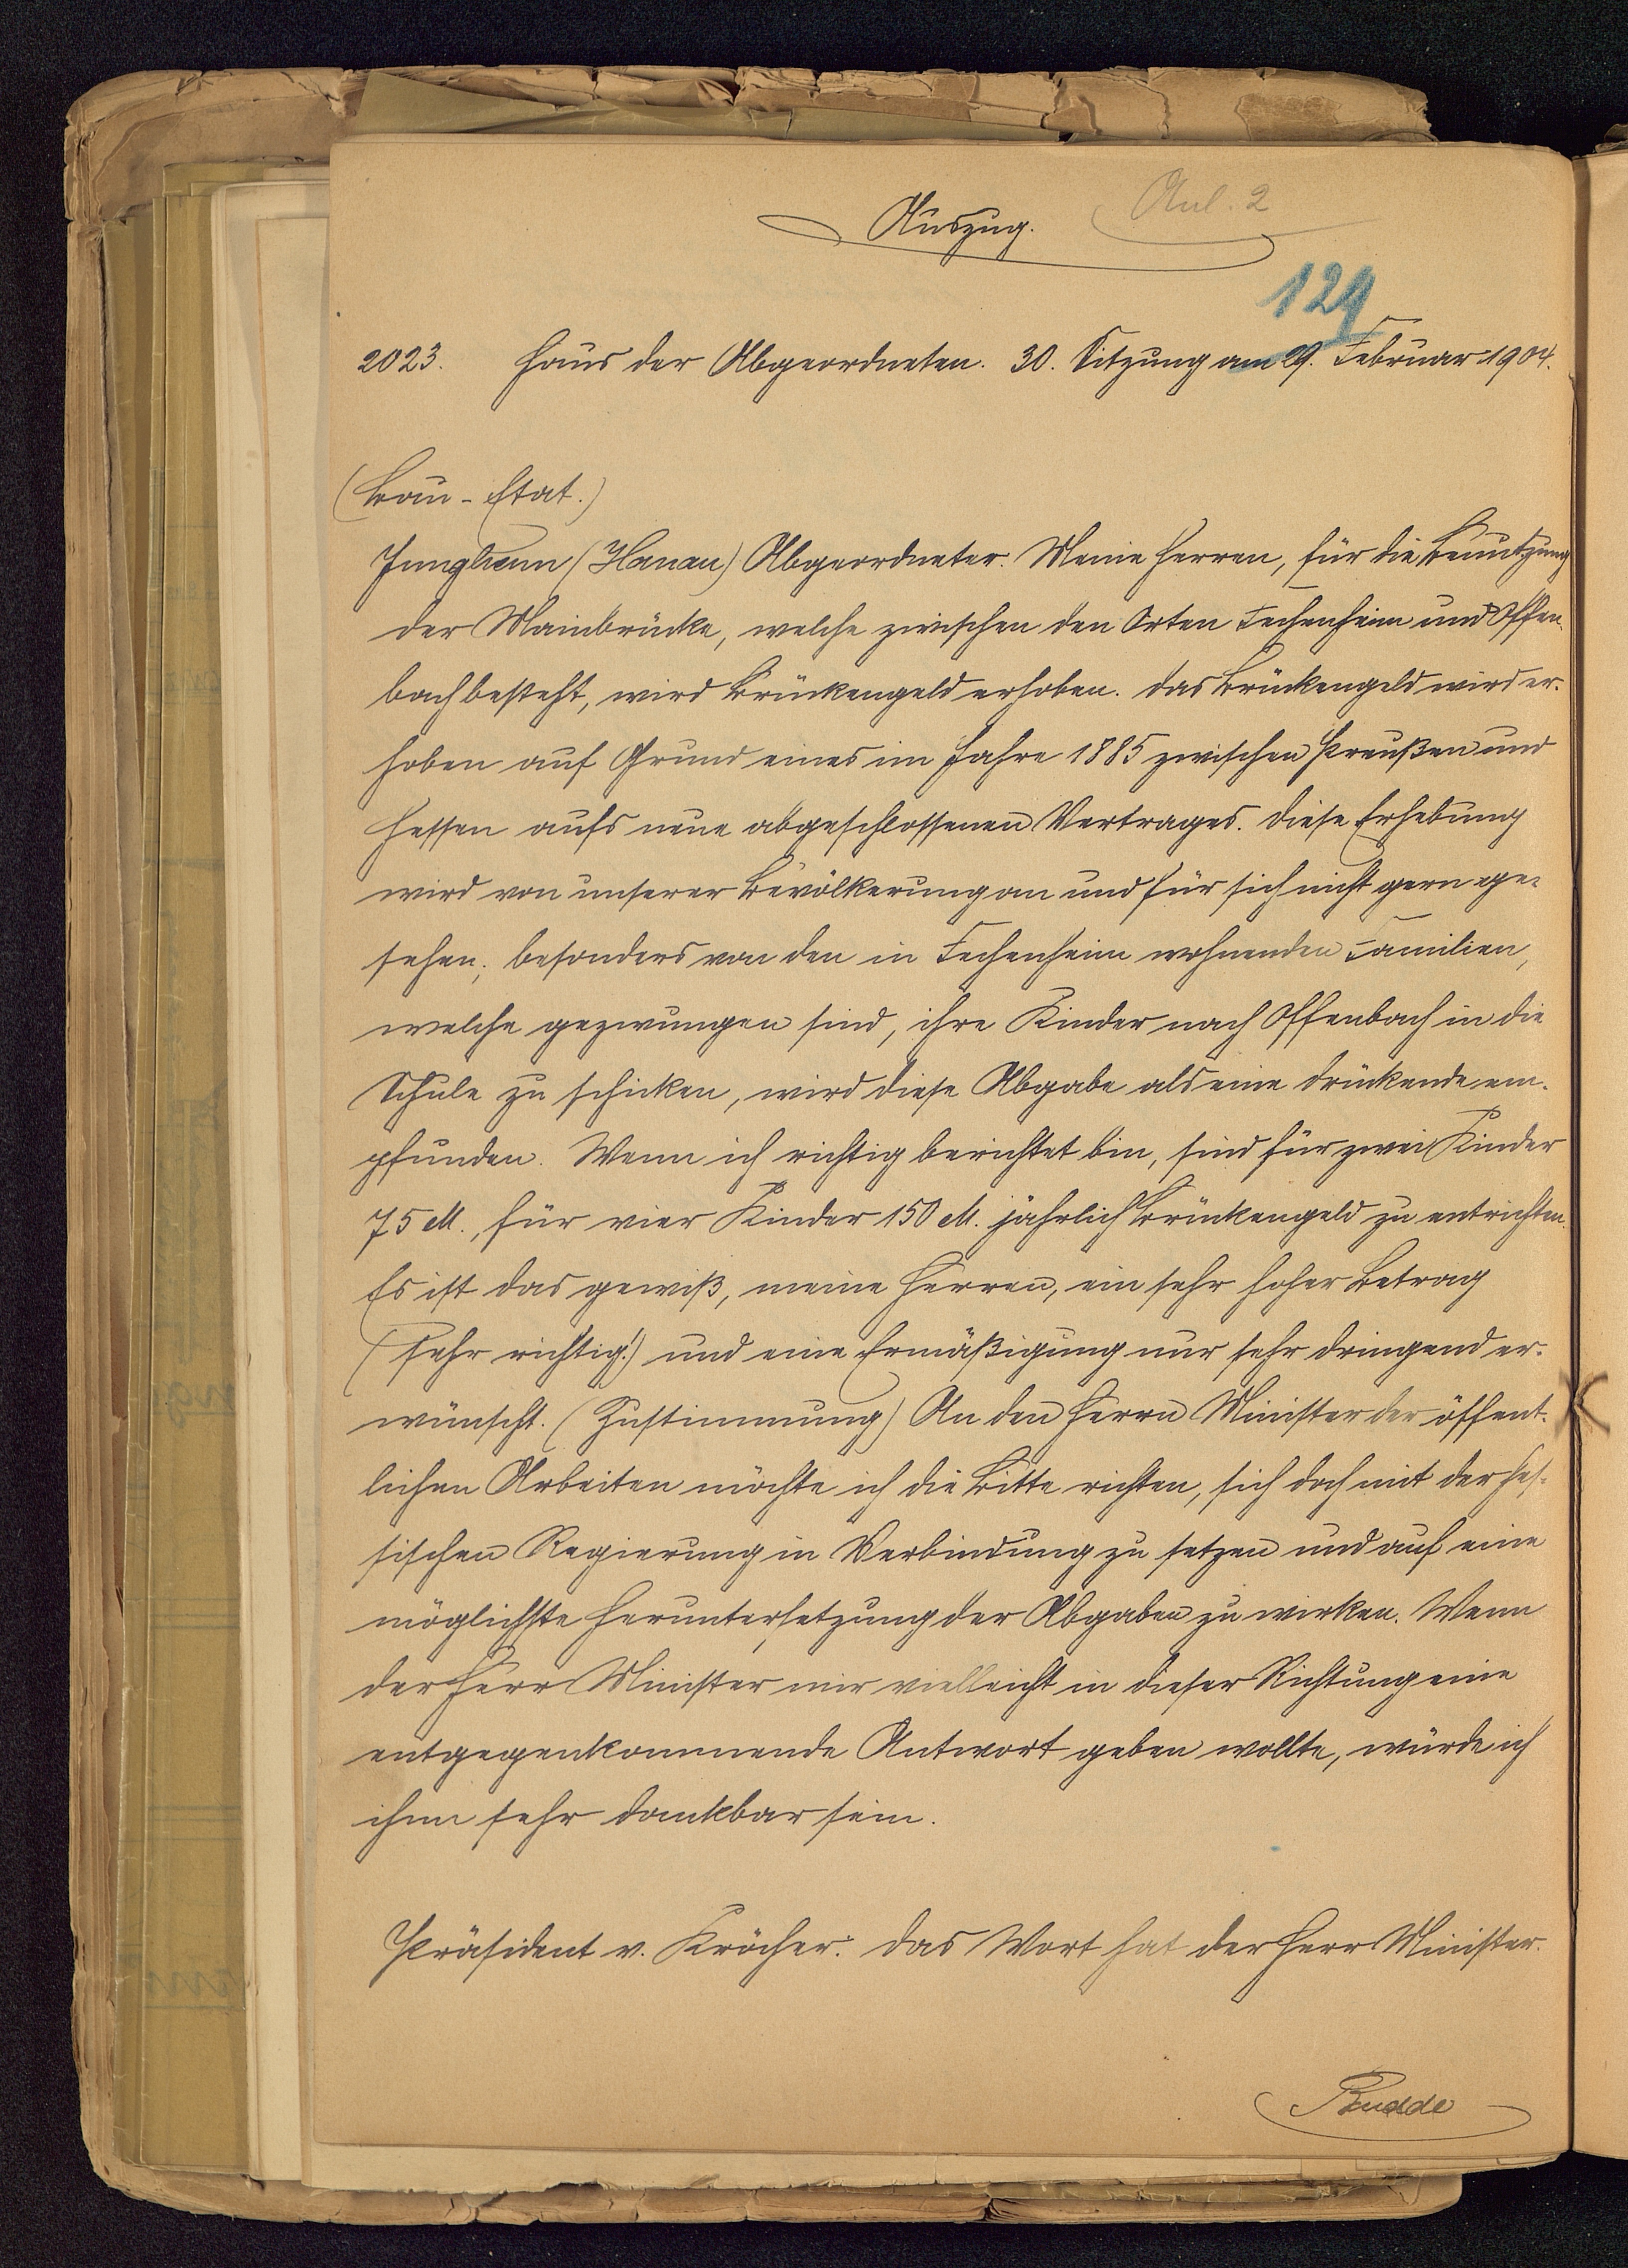 Anl. 2
Auszug.
124
2023. Haus der Abgeordneten. 30. Sitzung am 29. Februar 1904.
(Bau-Etat.)
Junghenn (Hanau) Abgeordneter. Meine Herren, für die Benutzung
der Mainbrücke, welche zwischen den Orten Fechenheim und Offen-
bach besteht, wird Brückengeld erhoben. Das Brückengeld wird er-
hoben auf Grund eines im Jahre 1885 zwischen Preußen und
Hessen aufs neue abgeschlossenen Vertrages. Diese Erhebung
wird von unserer Bevölkerung an und für sich nicht gern ge-
sehen; besonders von den in Fechenheim wohnenden Familien,
welche gezwungen sind, ihre Kinder nach Offenbach in die
Schule zu schicken, wird diese Abgabe als eine drückende em-
pfunden. Wenn ich richtig berichtet bin, sind für zwei Kinder
75 M., für vier Kinder 150 M. jährlich Brückengeld zu entrichten.
Es ist das gewiß, meine Herren, ein sehr hoher Betrag
(sehr richtig!) und eine Ermäßigung nur sehr dringend er-
wünscht. (Zustimmung) An den Herrn Minister der öffent-
lichen Arbeiten möchte ich die Bitte richten, sich doch mit der hes-
sischen Regierung in Verbindung zu setzen und auf eine
möglichste Heruntersetzung der Abgaben zu wirken. Wenn
der Herr Minister mir vielleicht in dieser Richtung eine
entgegenkommende Antwort geben wollte, würde ich
ihm sehr dankbar sein.
Präsident v. Kröcher: Das Wort hat der Herr Minister.
Budde